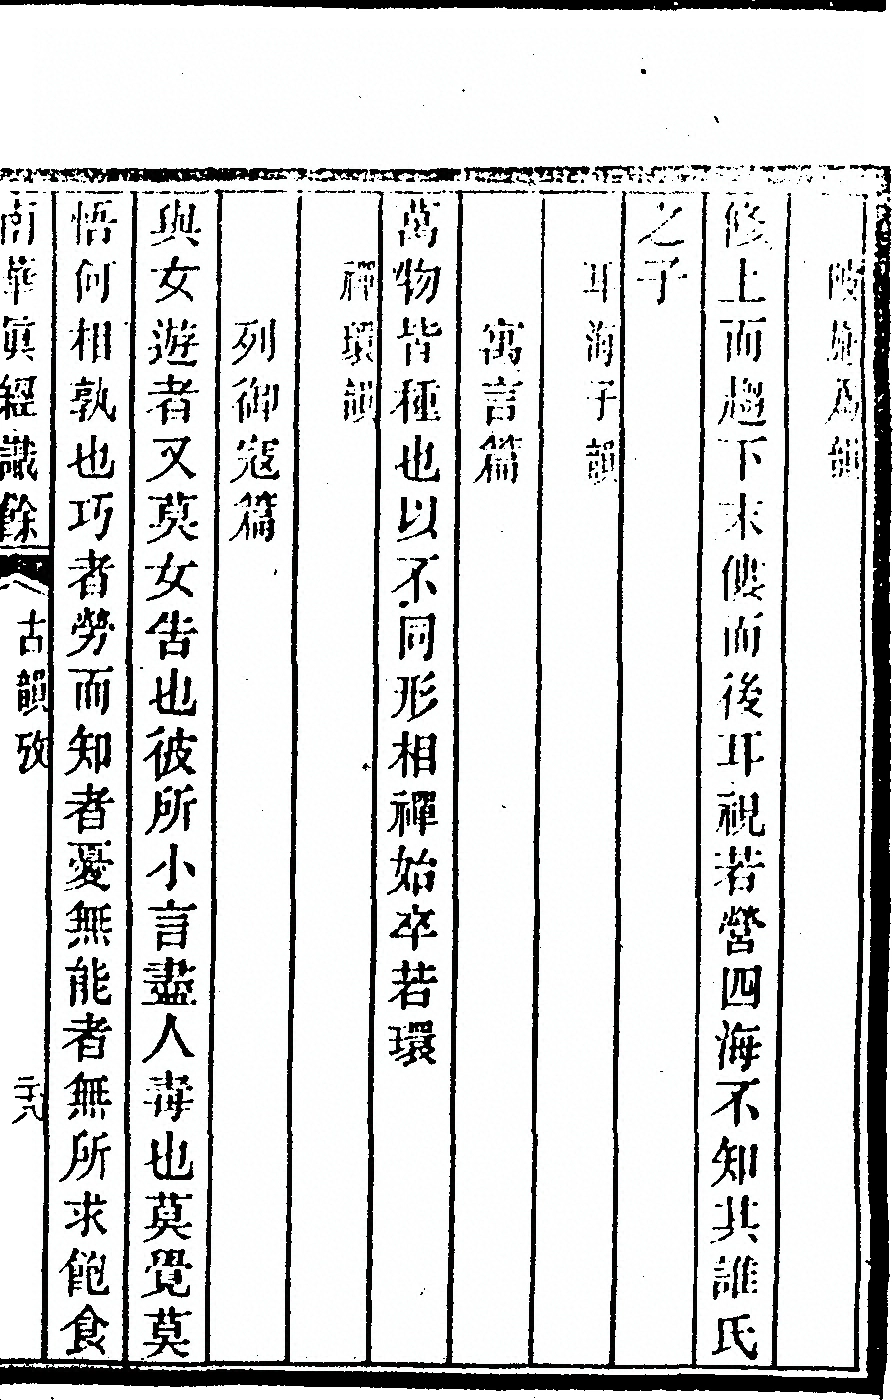 陂施爲韻
修上而趨下末僂而後耳視若營四海不知其誰氏
之子
耳海子韻
寓言篇
萬物皆種也以不同形相禪始卒若環
禪環韻
列御寇篇
與女遊者又莫女告也彼所小言盡人毒也莫覺莫
悟何相孰也巧者勞而知者憂無能者無所求飽食
南華眞經識餘
古韻攷
二九